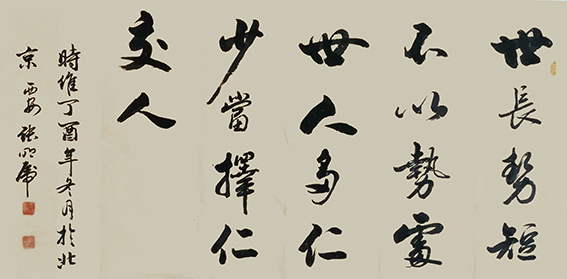 世長势短
不以勢處
世人多仁
少當擇仁
交人
時維丁酉年冬月於北
京西安張